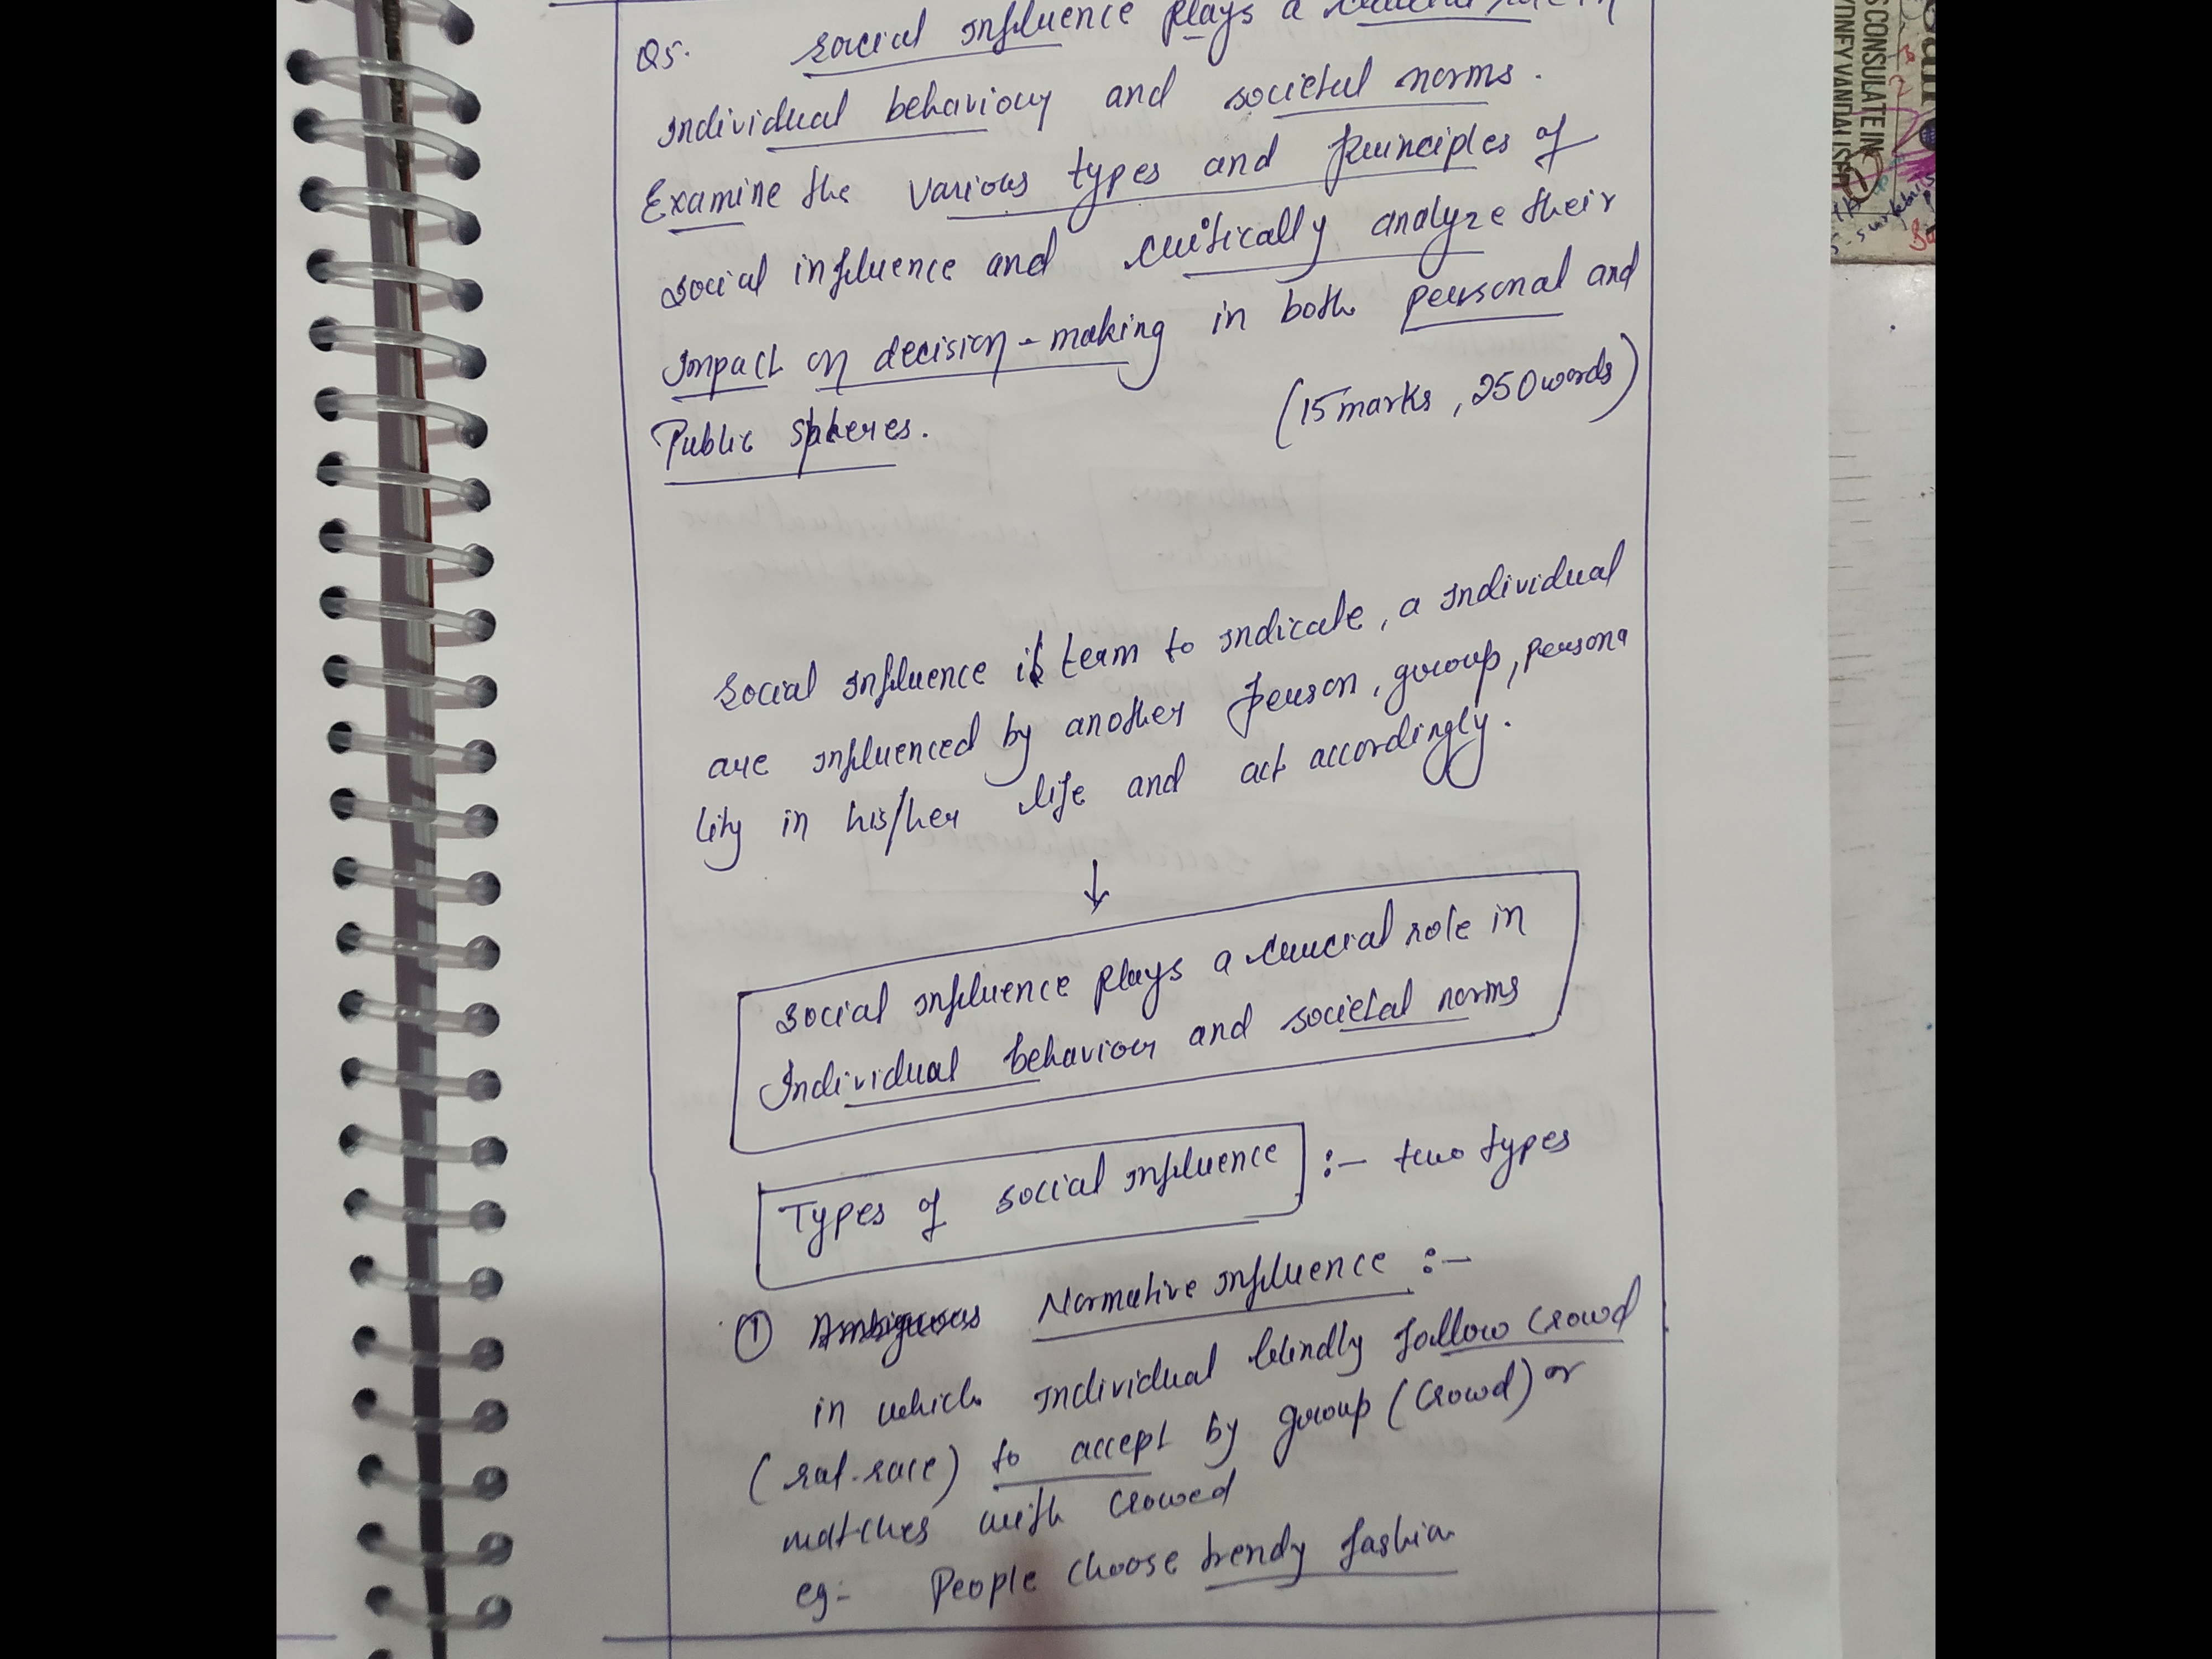 Q5. Social Influence plays a crucial role in
Individual behaviour and societal norms.
Examine the various types and principles of
social influence and critically analyze their
Impact on decision-making in both personal and
Public spheres. (15 marks, 250 words)
Social Influence is term to indicate, a individual
are influenced by another person, group, persona
lity in his/her life and act accordingly.
↓
Social Influence plays a crucial role in
Individual behaviour and societal norms
Types of social influence :- two types
① Normative influence :-
in which individual blindly follow crowd
(rat-race) to accept by group (crowd) or
matches with crowed
eg:- People choose trendy fashion
S CONSULATE IN